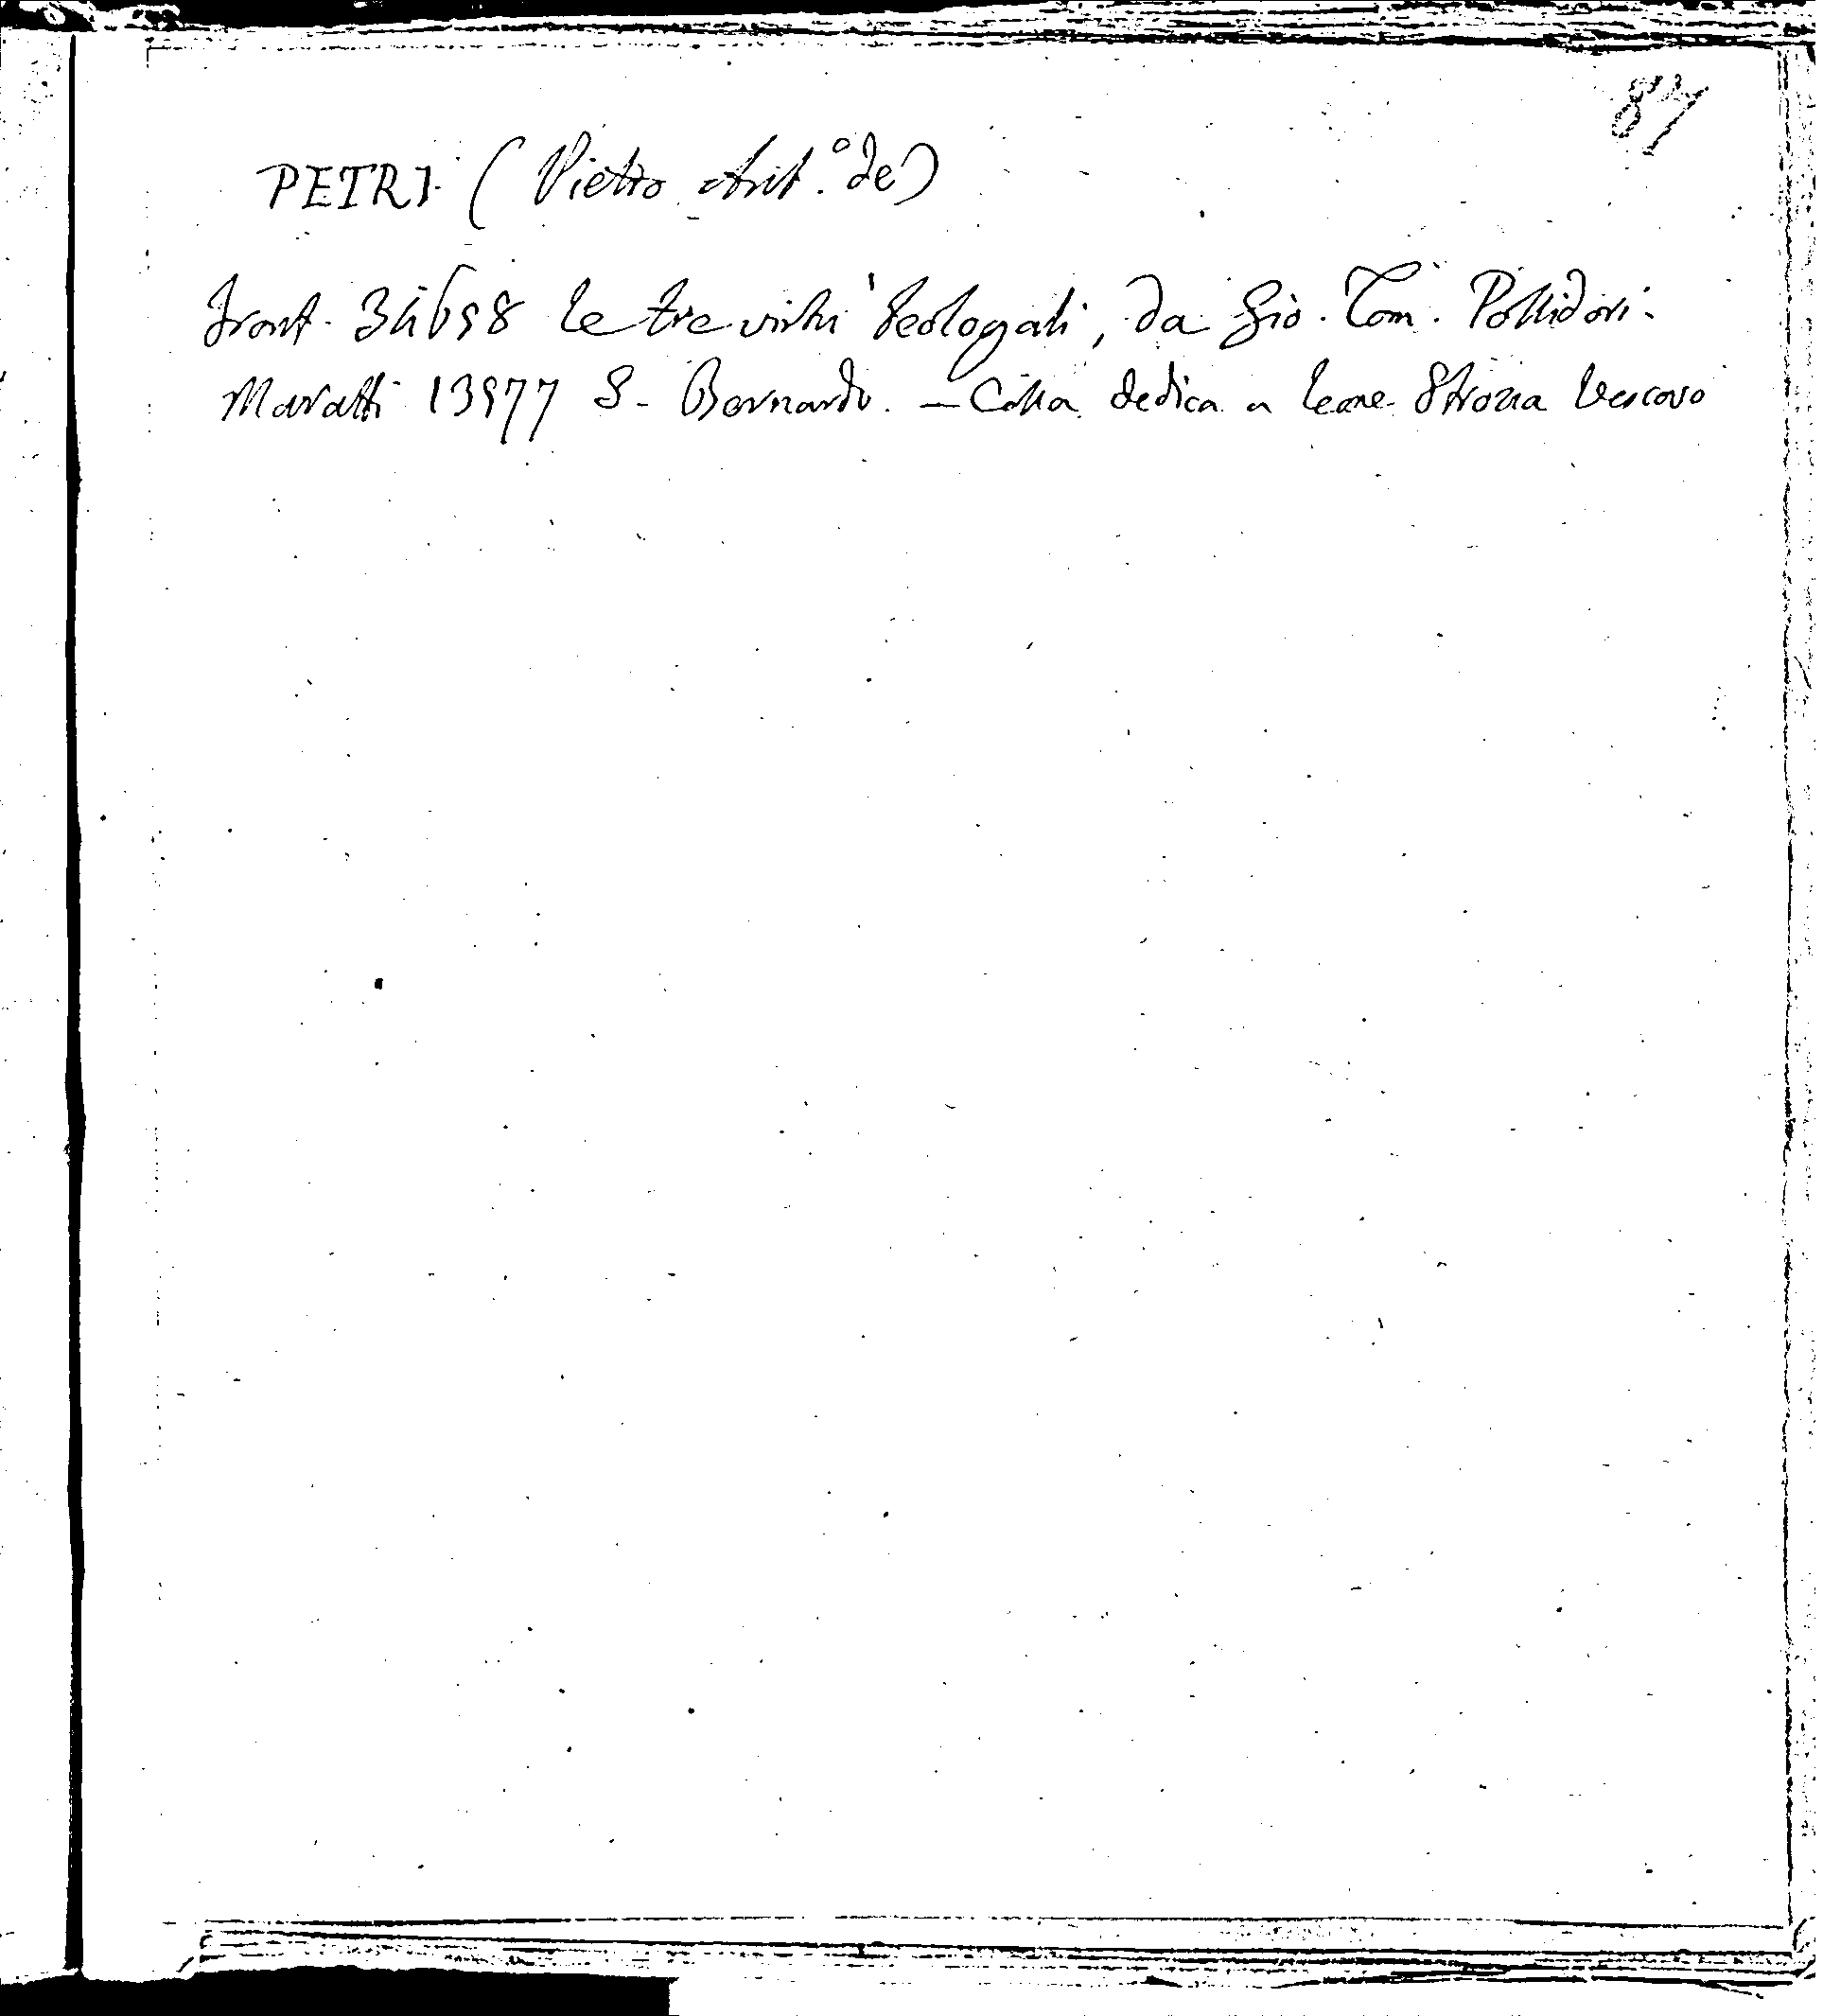 87
PETRI (Pietro Ant.º de)
Front. 34698 le tre virtù teologali, da Gio. Tom. Pollidori.
Maratti 13977 S. Bernardo. — Colla dedica a Leone Strozza Vescovo